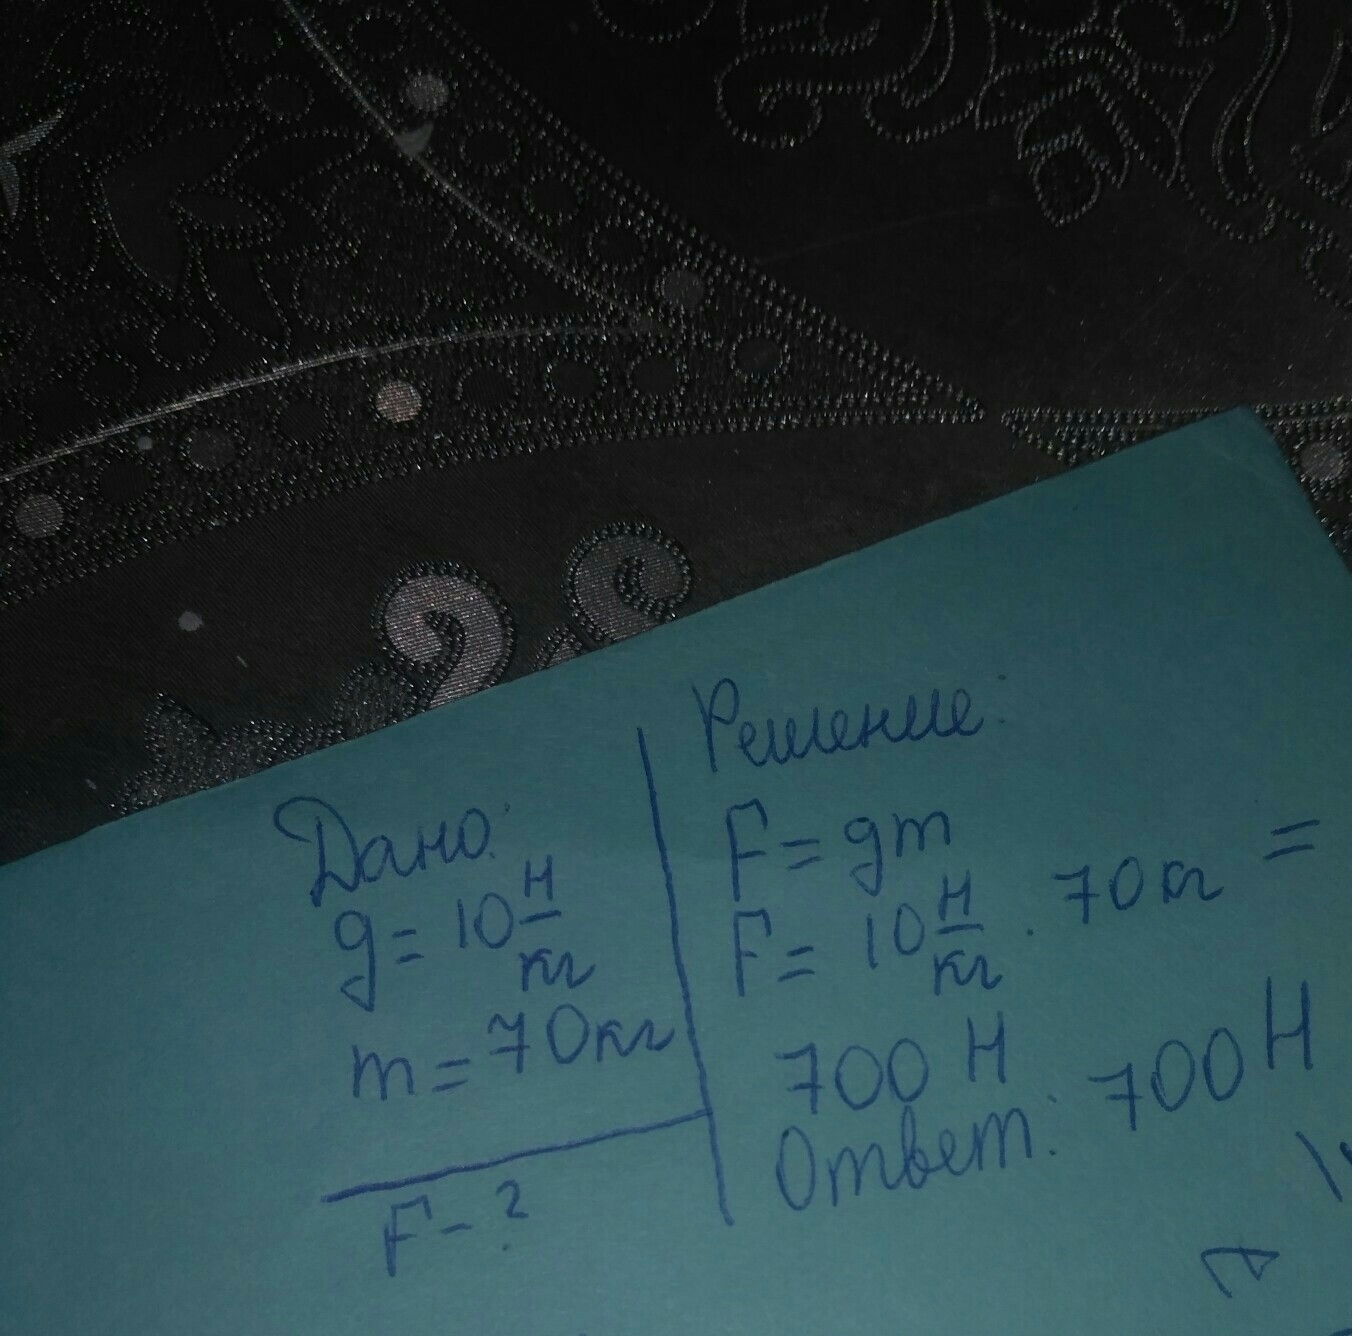 Дано:
g = 10 Н/кг
m = 70 кг
F - ?
Решение:
F = gm
F = 10 Н/кг · 70 кг =
700 Н
Ответ: 700 Н